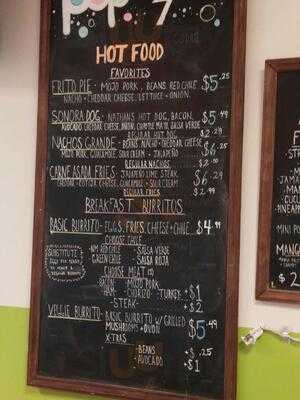 pop
HOT FOOD
FAVORITES
FRITO PIE - MOJO PORK, BEANS, RED CHILE $5.25
NACHO + CHEDDAR CHEESE, LETTUCE + ONION.
SONORA DOG - NATHANS HOT DOG, BACON, $5.49
AVOCADO, CHEDDAR CHEESE, ONION, CHIPOTLE MAYO, SALSA VERDE
REGULAR HOT DOG $2.29
NACHOS GRANDE - BEANS, NACHO + CHEDDAR CHEESE $6.25
MOJO PORK, GUACAMOLE, SOUR CREAM + JALAPEÑO
REGULAR NACHOS $2.50
CARNE ASADA FRIES - JALAPEÑO LIME STEAK, $6.29
CHEESE, GUACAMOLE + SOUR CREAM
REGULAR FRIES $2.99
BREAKFAST BURRITOS
BASIC BURRITO - EGGS, FRIES, CHEESE + CHILE $4.99
CHOOSE CHILE
-NM RED CHILE -SALSA VERDE
-GREEN CHILE -SALSA ROJA
SUBSTITUTE
CHOOSE MEAT
-BACON -MOJO PORK
-HAM -CHORIZO -TURKEY +$1
-STEAK- +$2
VEGGIE BURRITO - BASIC BURRITO W/ GRILLED $5.49
MUSHROOMS + ONION
X-TRAS
-BEANS +$.25
-AVOCADO +$1
MINI PO
MANG
$2